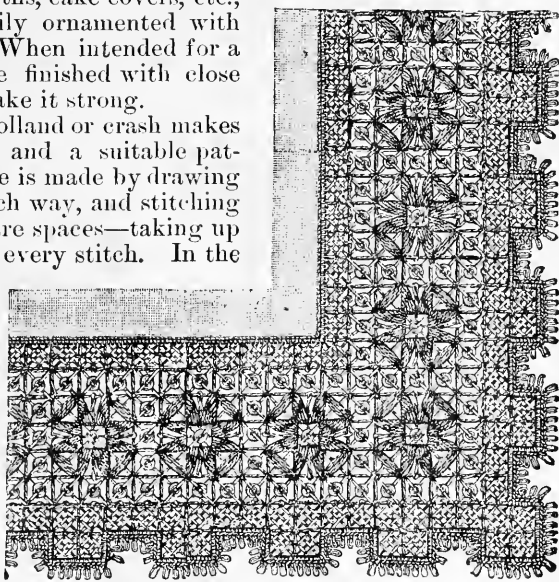 cake covers, etc.,
ily ornamented with
When intended for a
e finished with close
ake it strong.
olland or crash makes
and a suitable pat-
e is made by drawing
ch way, and stitching
re spaces—taking up
every stitch. In the